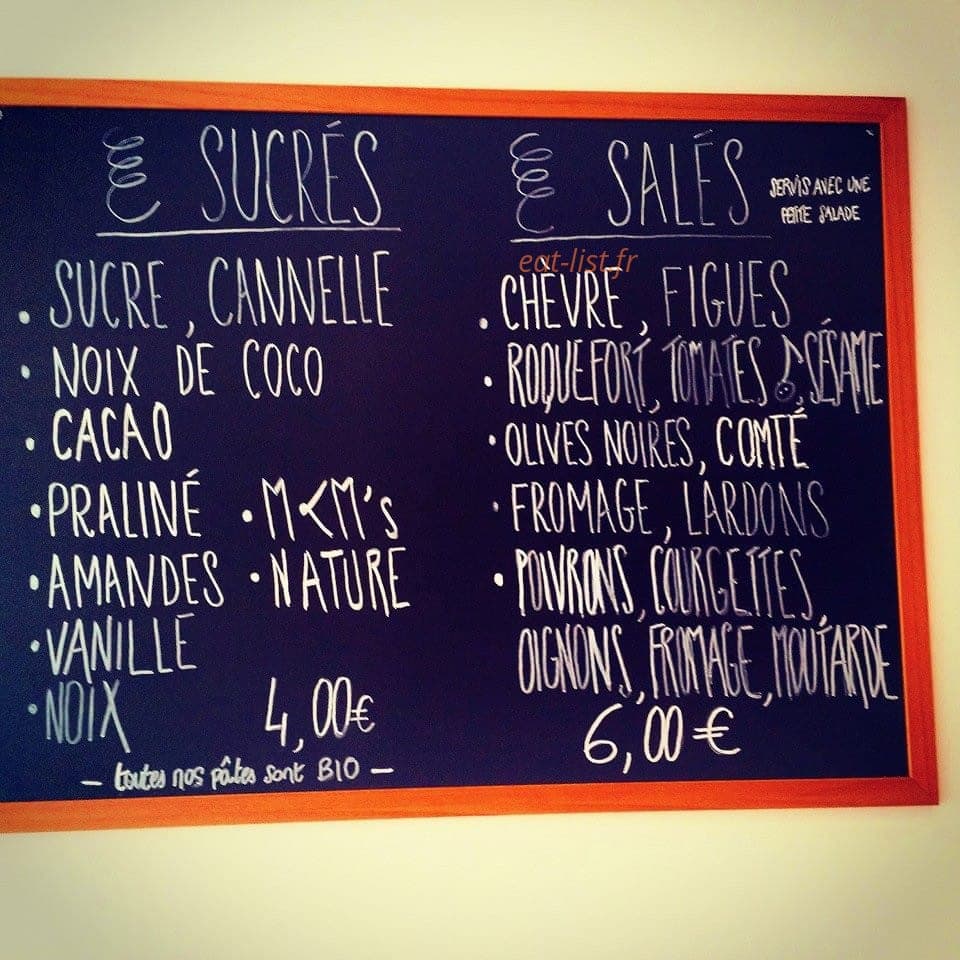 SUCRÉS
SUCRE, CANNELLE
NOIX DE COCO
CACAO
PRALINÉ
AMANDES
VANILLE
NOIX
M&M's
NATURE
4,00€
— toutes nos pâtes sont BIO —
SALÉS
SERVIS AVEC UNE
PETITE SALADE
eat-list.fr
CHEVRE, FIGUES
ROQUEFORT, TOMATES, SÉSAME
OLIVES NOIRES, COMTÉ
FROMAGE, LARDONS
POIVRONS, COURGETTES,
OIGNONS, FROMAGE, MOUTARDE
6,00 €